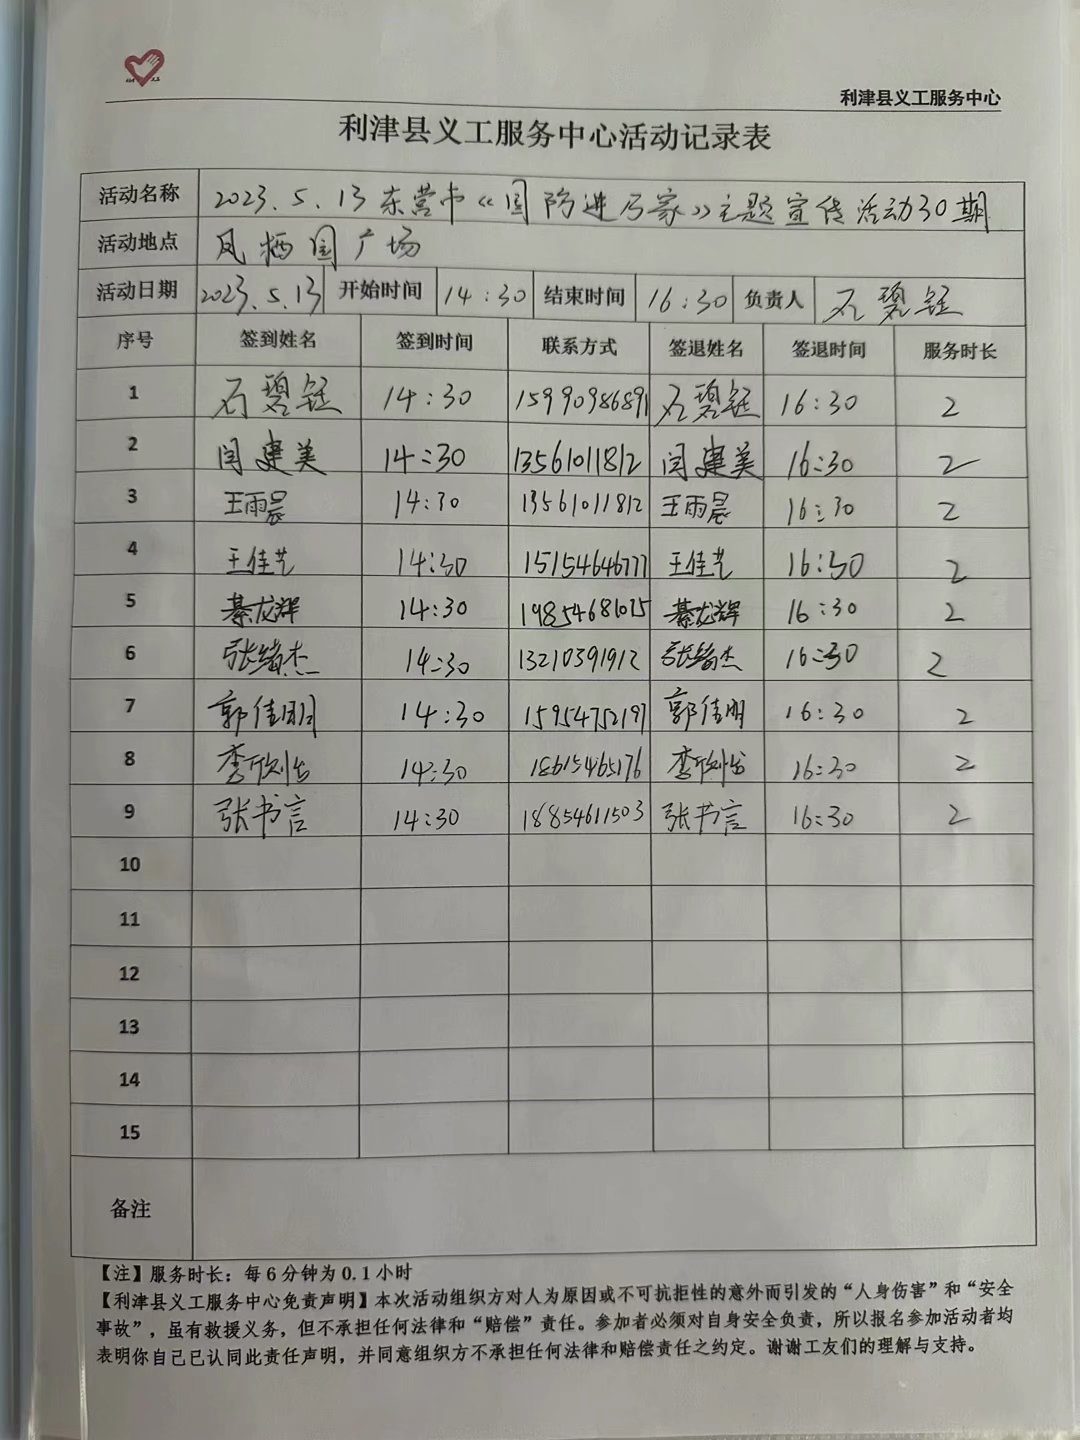 利津县义工服务中心
利津县义工服务中心活动记录表
活动名称 2023.5.13东营市《国防进万家》主题宣传活动30期
活动地点 凤栖园广场
活动日期 2023.5.13 开始时间 14:30 结束时间 16:30 负责人 石碧钰
序号 签到姓名 签到时间 联系方式 签退姓名 签退时间 服务时长
1 石碧钰 14:30 15990986891 石碧钰 16:30 2
2 闫建美 14:30 13561011812 闫建美 16:30 2
3 王雨晨 14:30 13561011812 王雨晨 16:30 2
4 王佳艺 14:30 15154646777 王佳艺 16:30 2
5 綦龙辉 14:30 19854681075 綦龙辉 16:30 2
6 张绪杰 14:30 13210391912 张绪杰 16:30 2
7 郭佳明 14:30 15954752197 郭佳明 16:30 2
8 14:30 18615465176 16:30 2
9 张书言 14:30 18854611503 张书言 16:30 2
10
11
12
13
14
15
备注
【注】服务时长：每6分钟为0.1小时
【利津县义工服务中心免责声明】本次活动组织方对人为原因或不可抗拒性的意外而引发的“人身伤害”和“安全
事故”，虽有救援义务，但不承担任何法律和“赔偿”责任。参加者必须对自身安全负责，所以报名参加活动者均
表明你自己已认同此责任声明，并同意组织方不承担任何法律和赔偿责任之约定。谢谢工友们的理解与支持。